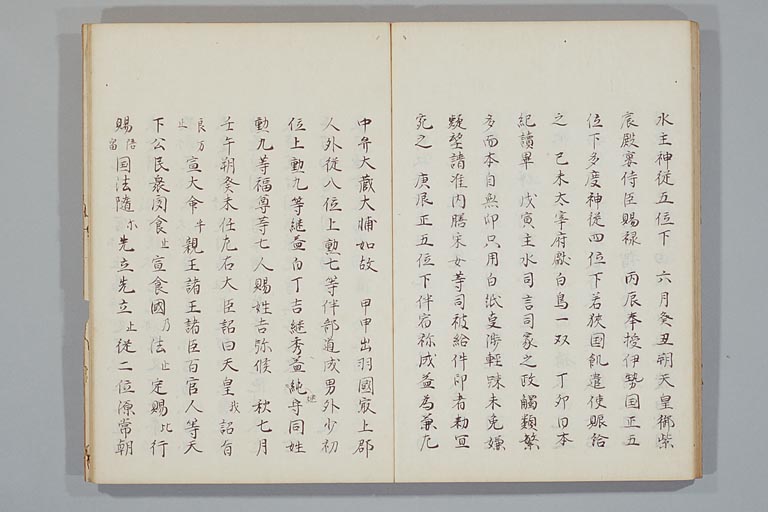 水主神従五位下 六月癸丑朔天皇御紫
宸殿裏侍臣賜禄 丙辰奉授伊勢国正五
位下多度神従四位下若狭国飢遣使賑給
之 己未太宰府献白鳥一双 丁卯日本
紀讀畢 戊寅主水司言司家之政觸類繁
多而本自無印只用白紙毎渉輕踈未免嫌
疑望請准内膳采女等司被給件印者勅宜
宛之 庚辰正五位下伴宿祢成益為兼左
中弁大蔵大輔如故 甲申出羽國最上郡
人外従八位上勲七等伴部道成男外少初
位上勲九等継益白丁吉継秀益純守同姓
勲九等福尊等七人賜姓吉弥候 秋七月
壬午朔癸未任左右大臣詔曰天皇我詔旨
良万止宣大命乎親王諸王諸臣百官人等天
下公民衆聞食止宣食國乃法止定賜比行
賜倍留国法隨尓先立先立止従二位源常朝